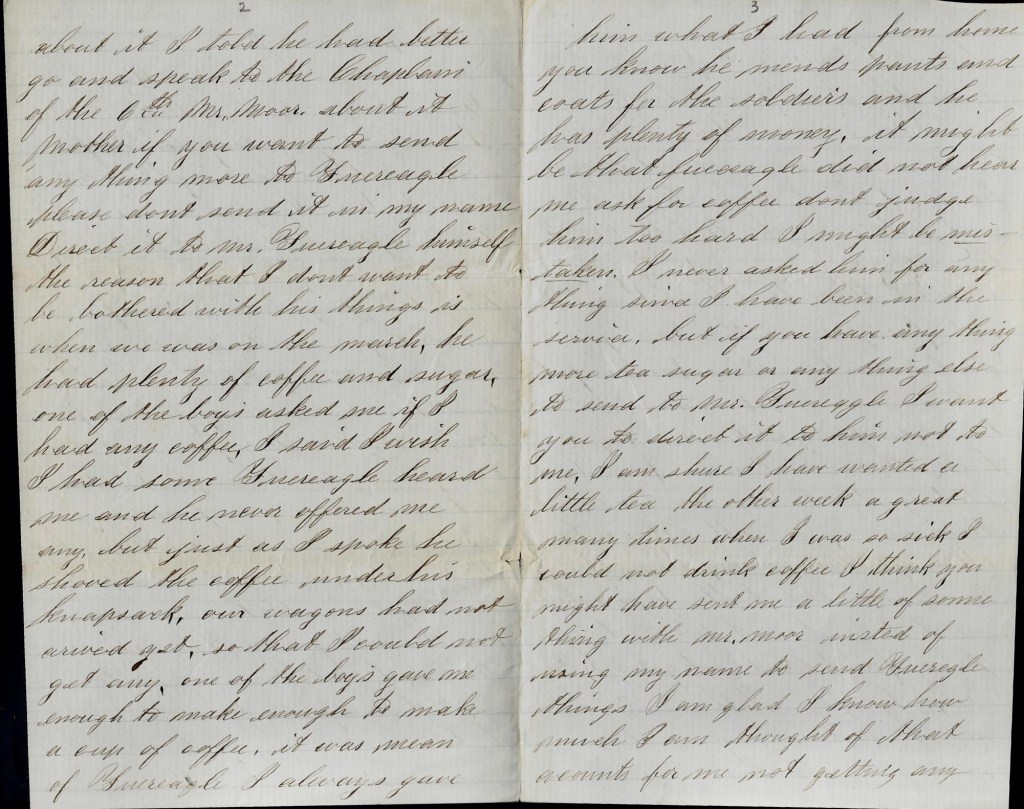 2
about it I told he had better
go and speak to the Chaplain
of the 6th Mr. Moor. about it
Mother if you want to send
any thing more to Fuereagle
please dont send it in my name
Direct it to Mr. Fuereagle himself
the reason that I dont want to
be bothered with his things is
when we was on the march, he
had plenty of coffee and sugar,
one of the boys asked me if I
had any coffee, I said I wish
I had some Fuereagle heard
me and he never offered me
any, but just as I spoke he
shoved the coffee under his
knapsack, our wagons had not
arived yet, so that I could not
get any, one of the boys gave me
enough to make enough to make
a cup of coffee, it was mean
of Fuereagle I always gave
3
him what I had from home
you know he mends pants and
coats for the soldiers and he
has plenty of money, it might
be that fuereagle did not hear
me ask for coffee dont judge
him too hard I might be mis-
taken. I never asked him for any
thing since I have been in the
service, but if you have any thing
more tea sugar or any thing else
to send to Mr. Fuereagle I want
you to direct it to him not to
me, I am shure I have wanted a
little tea the other week a great
many times when I was so sick I
could not drink coffee I think you
might have sent me a little of some
thing with Mr. Moor insted of
using my name to send Fueregle
things I am glad I know how
much I am thought of that
acounts for me not getting any